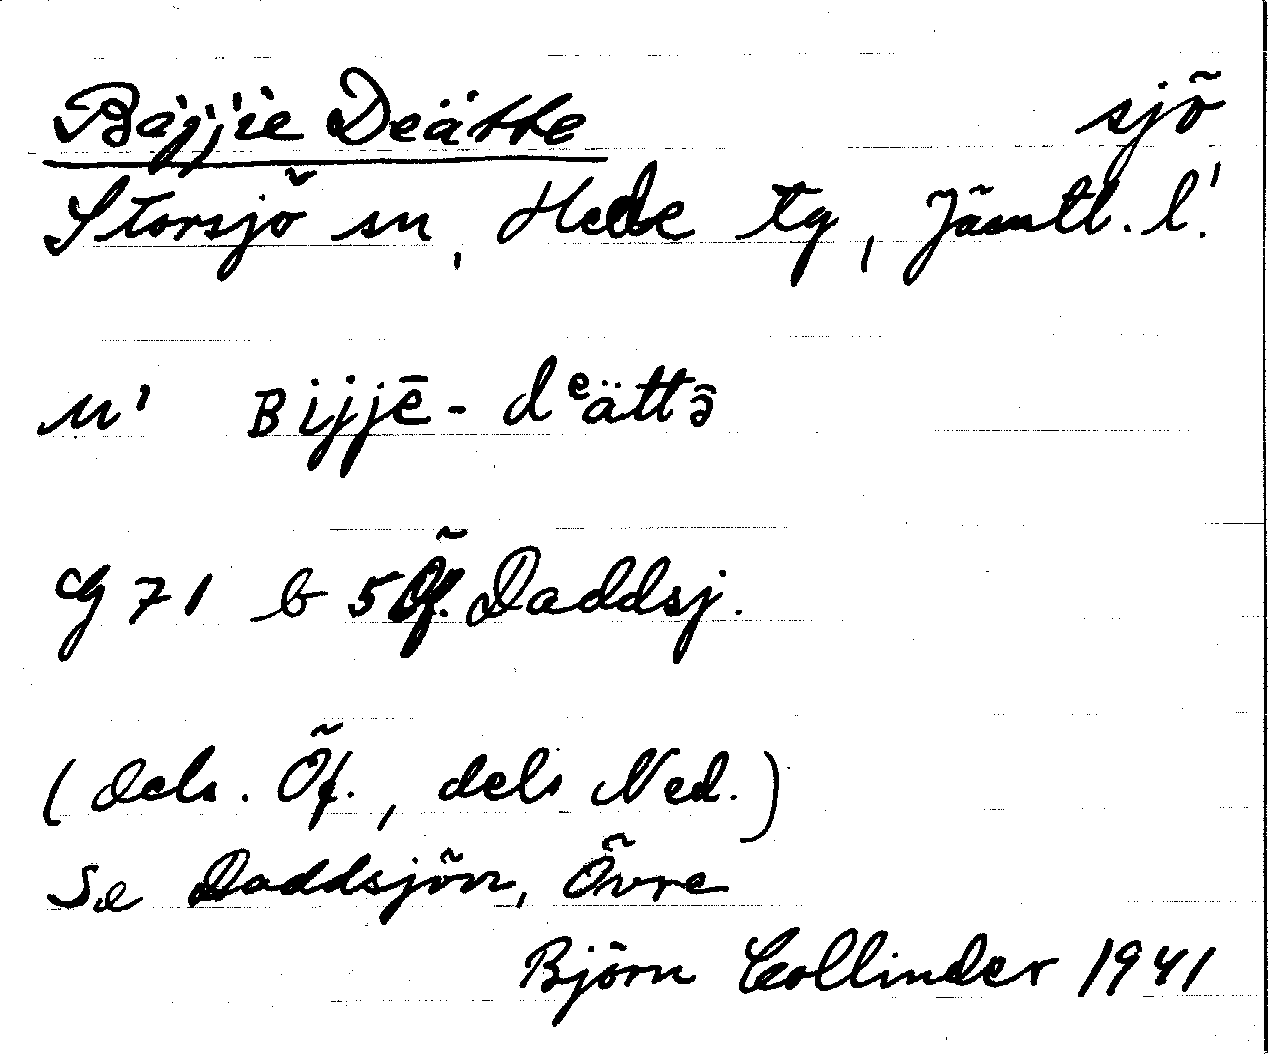 Bajjie Deätte sjö
Storsjö sn, Hede tg, Jämtl. l.
u' Bijjē - dᵉättə̂
G 71 b 5 Öf. Daddsj.
(dels. Öf., dels Ned.)
Se Daddsjön, Övre
Björn Collinder 1941